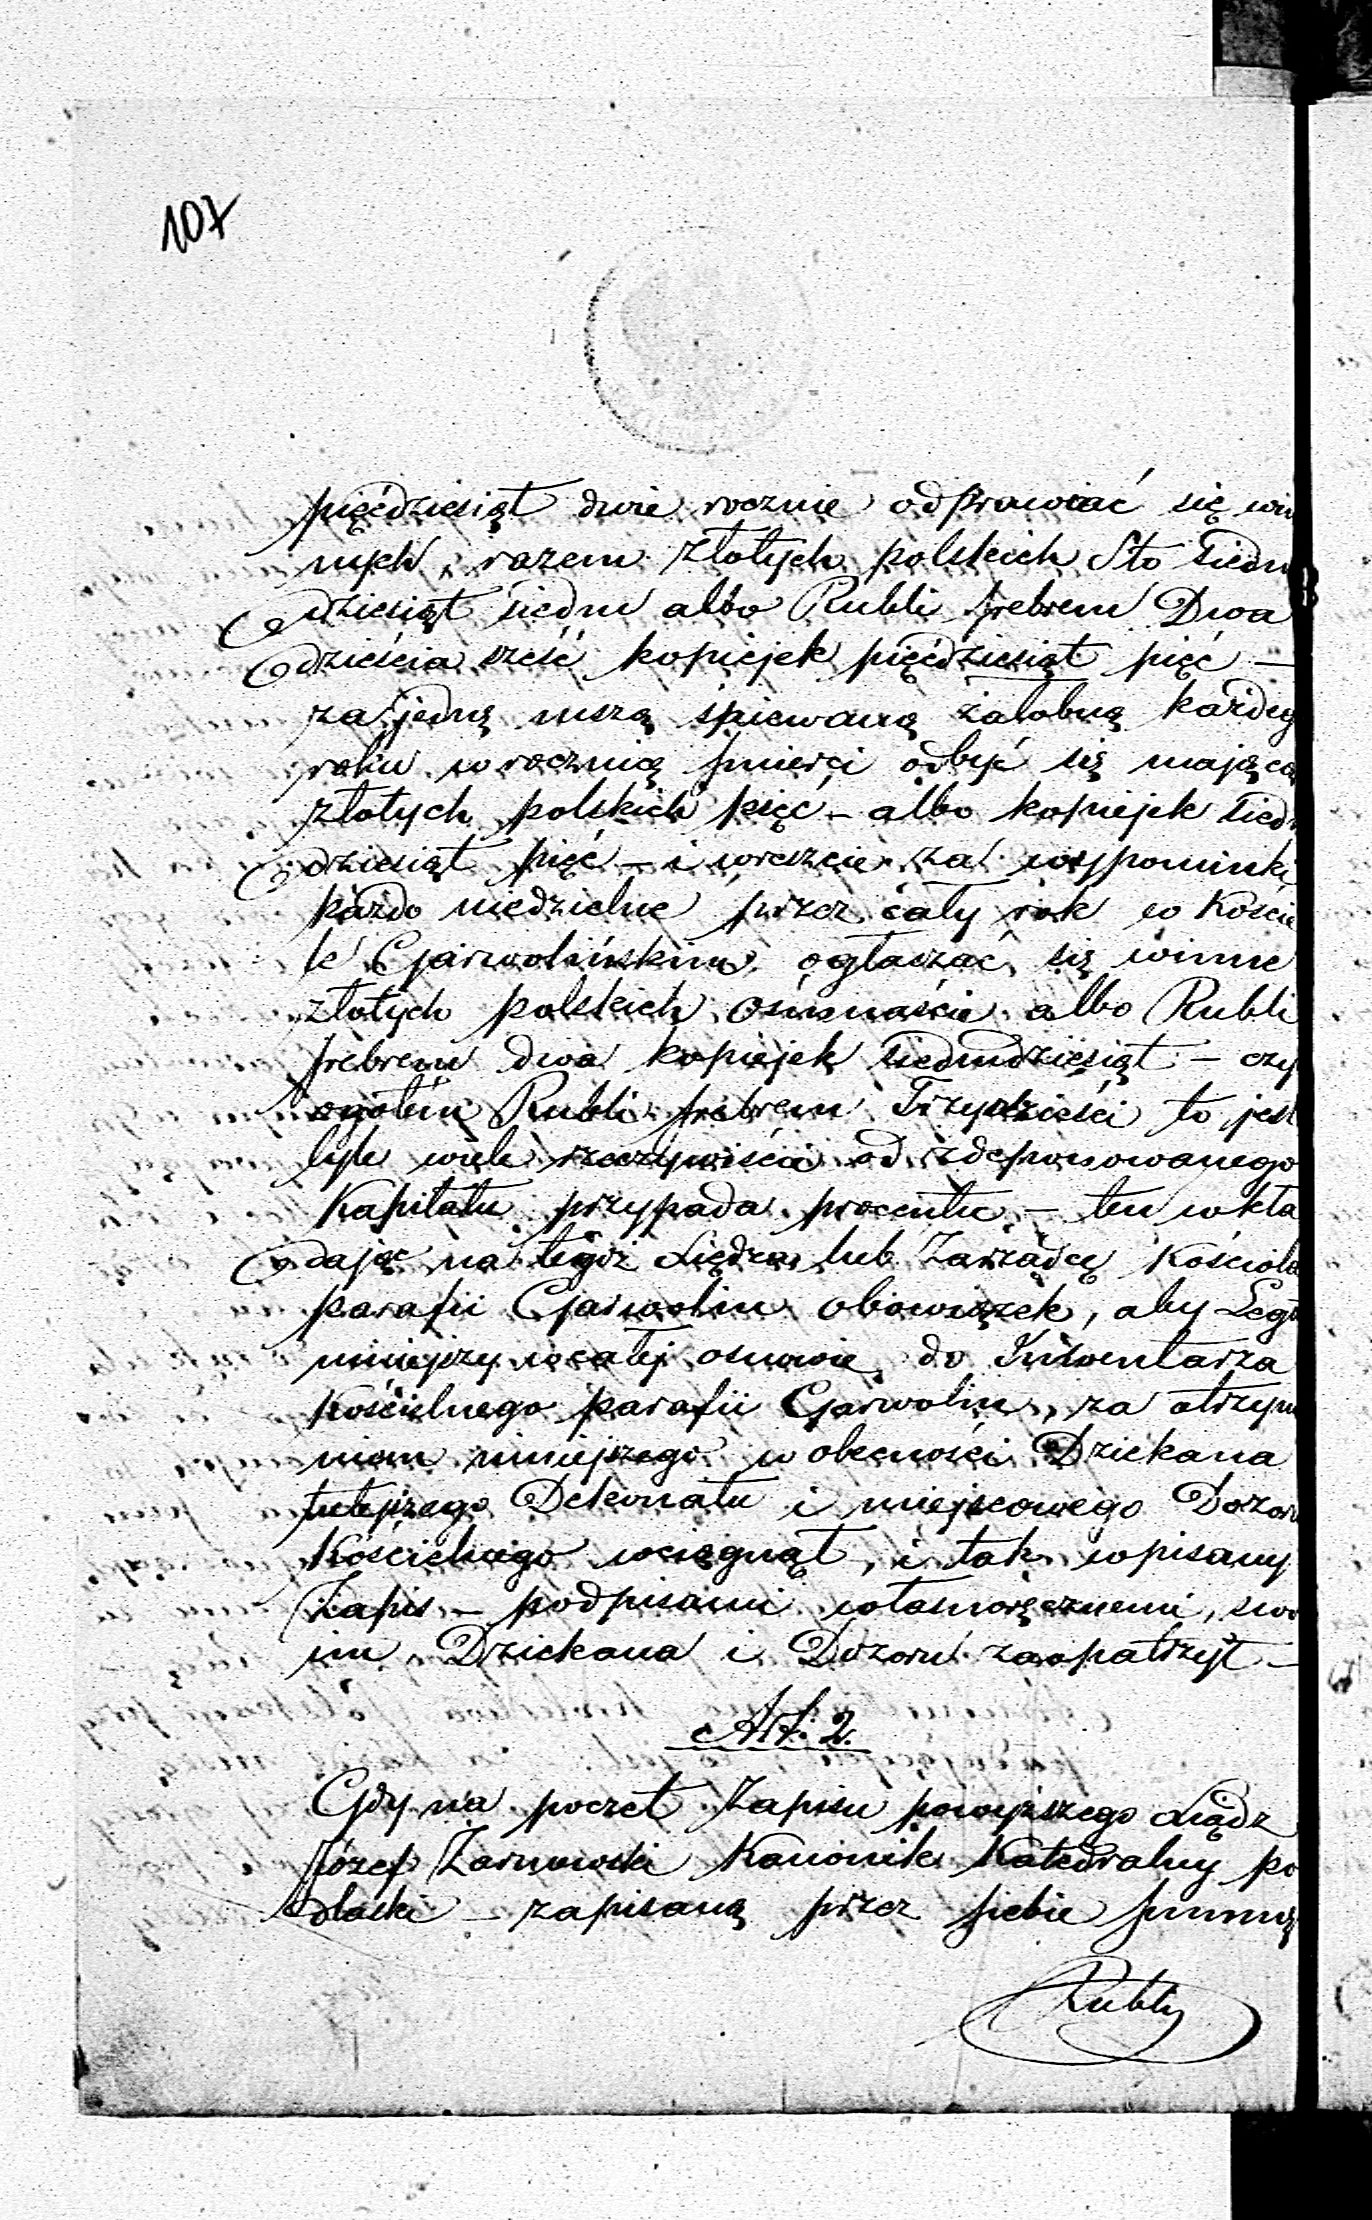 107
pięćdziesiąt dwie rocznie odprawiać się win
nych, razem złotych polskich Sto siedm
dziesiąt siedm albo Rubli srebrem Dwa
dzieścia sześć kopiejek pięćdziesiąt pięć –
za jedną mszą śpiewaną żałobną każdeg
roku w rocznicę śmierci odbyć się mającą
złotych polskich pięć – albo kopiejek siedm
dziesiąt pięć – i wreszcie za wypominki
każdo niedzielne przez cały rok w Koście
le Garwolińskim ogłaszać się winne
złotych polskich ośmnaście albo Rubli
srebrem dwa kopiejek siedmdziesiąt – czy
ogółem Rubli srebrem Trzydzieści to jest
tyle wiele rzeczywiście od zdeponowanego
Kapitału przypada procentu – ten wkła
dając na tegoż Księdza lub Zarządcę Kościoła
parafii Garwolin obowiązek, aby Lega
niniejszy w całej osnowie do Inwentarza
Kościelnego parafii Garwolin, za otrzyma
niem niniejszego w obecności Dziekana
tutejszego Dekanatu i miejscowego Dozoru
Kościelnego wciągnął, i tak wpisany
Zapis – podpisami własnoręcznemi, swo
im Dziekana i Dozoru zaopatrzył –
Art. 2.
Gdy na poczet Zapisu powyższego Ksiądz
Józef Żarnowski Kanonik Katedralny po
dlaski – zapisaną przez siebie summę
Rubly